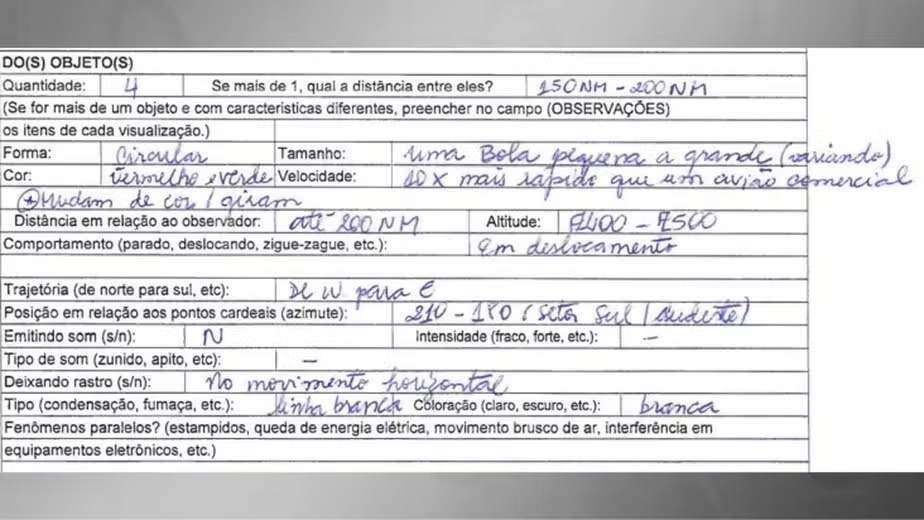 DO(S) OBJETO(S)
Quantidade: 4 Se mais de 1, qual a distância entre eles? 150NM - 200NM
(Se for mais de um objeto e com caracteristicas diferentes, preencher no campo (OBSERVAÇÕES)
os itens de cada visualização.)
Forma: Circular Tamanho: uma Bola pequena a grande (variando)
Cor: Vermelho e verde Velocidade: 10 X mais rapido que um avião comercial
Mudam de cor / giram
Distância em relação ao observador: até 200 NM Altitude: - F500
Comportamento (parado, deslocando, zigue-zague, etc.): Em deslocamento
Trajetória (de norte para sul, etc): De W para E
Posição em relação aos pontos cardeais (azimute): 210 - 180 (setor sul / sudeste)
Emitindo som (s/n): N Intensidade (fraco, forte, etc.): -
Tipo de som (zunido, apito, etc): -
Deixando rastro (s/n): No movimento horizontal
Tipo (condensação, fumaça, etc.): linha branca Coloração (claro, escuro, etc.): branca
Fenômenos paralelos? (estampidos, queda de energia elétrica, movimento brusco de ar, interferência em
equipamentos eletrônicos, etc.)